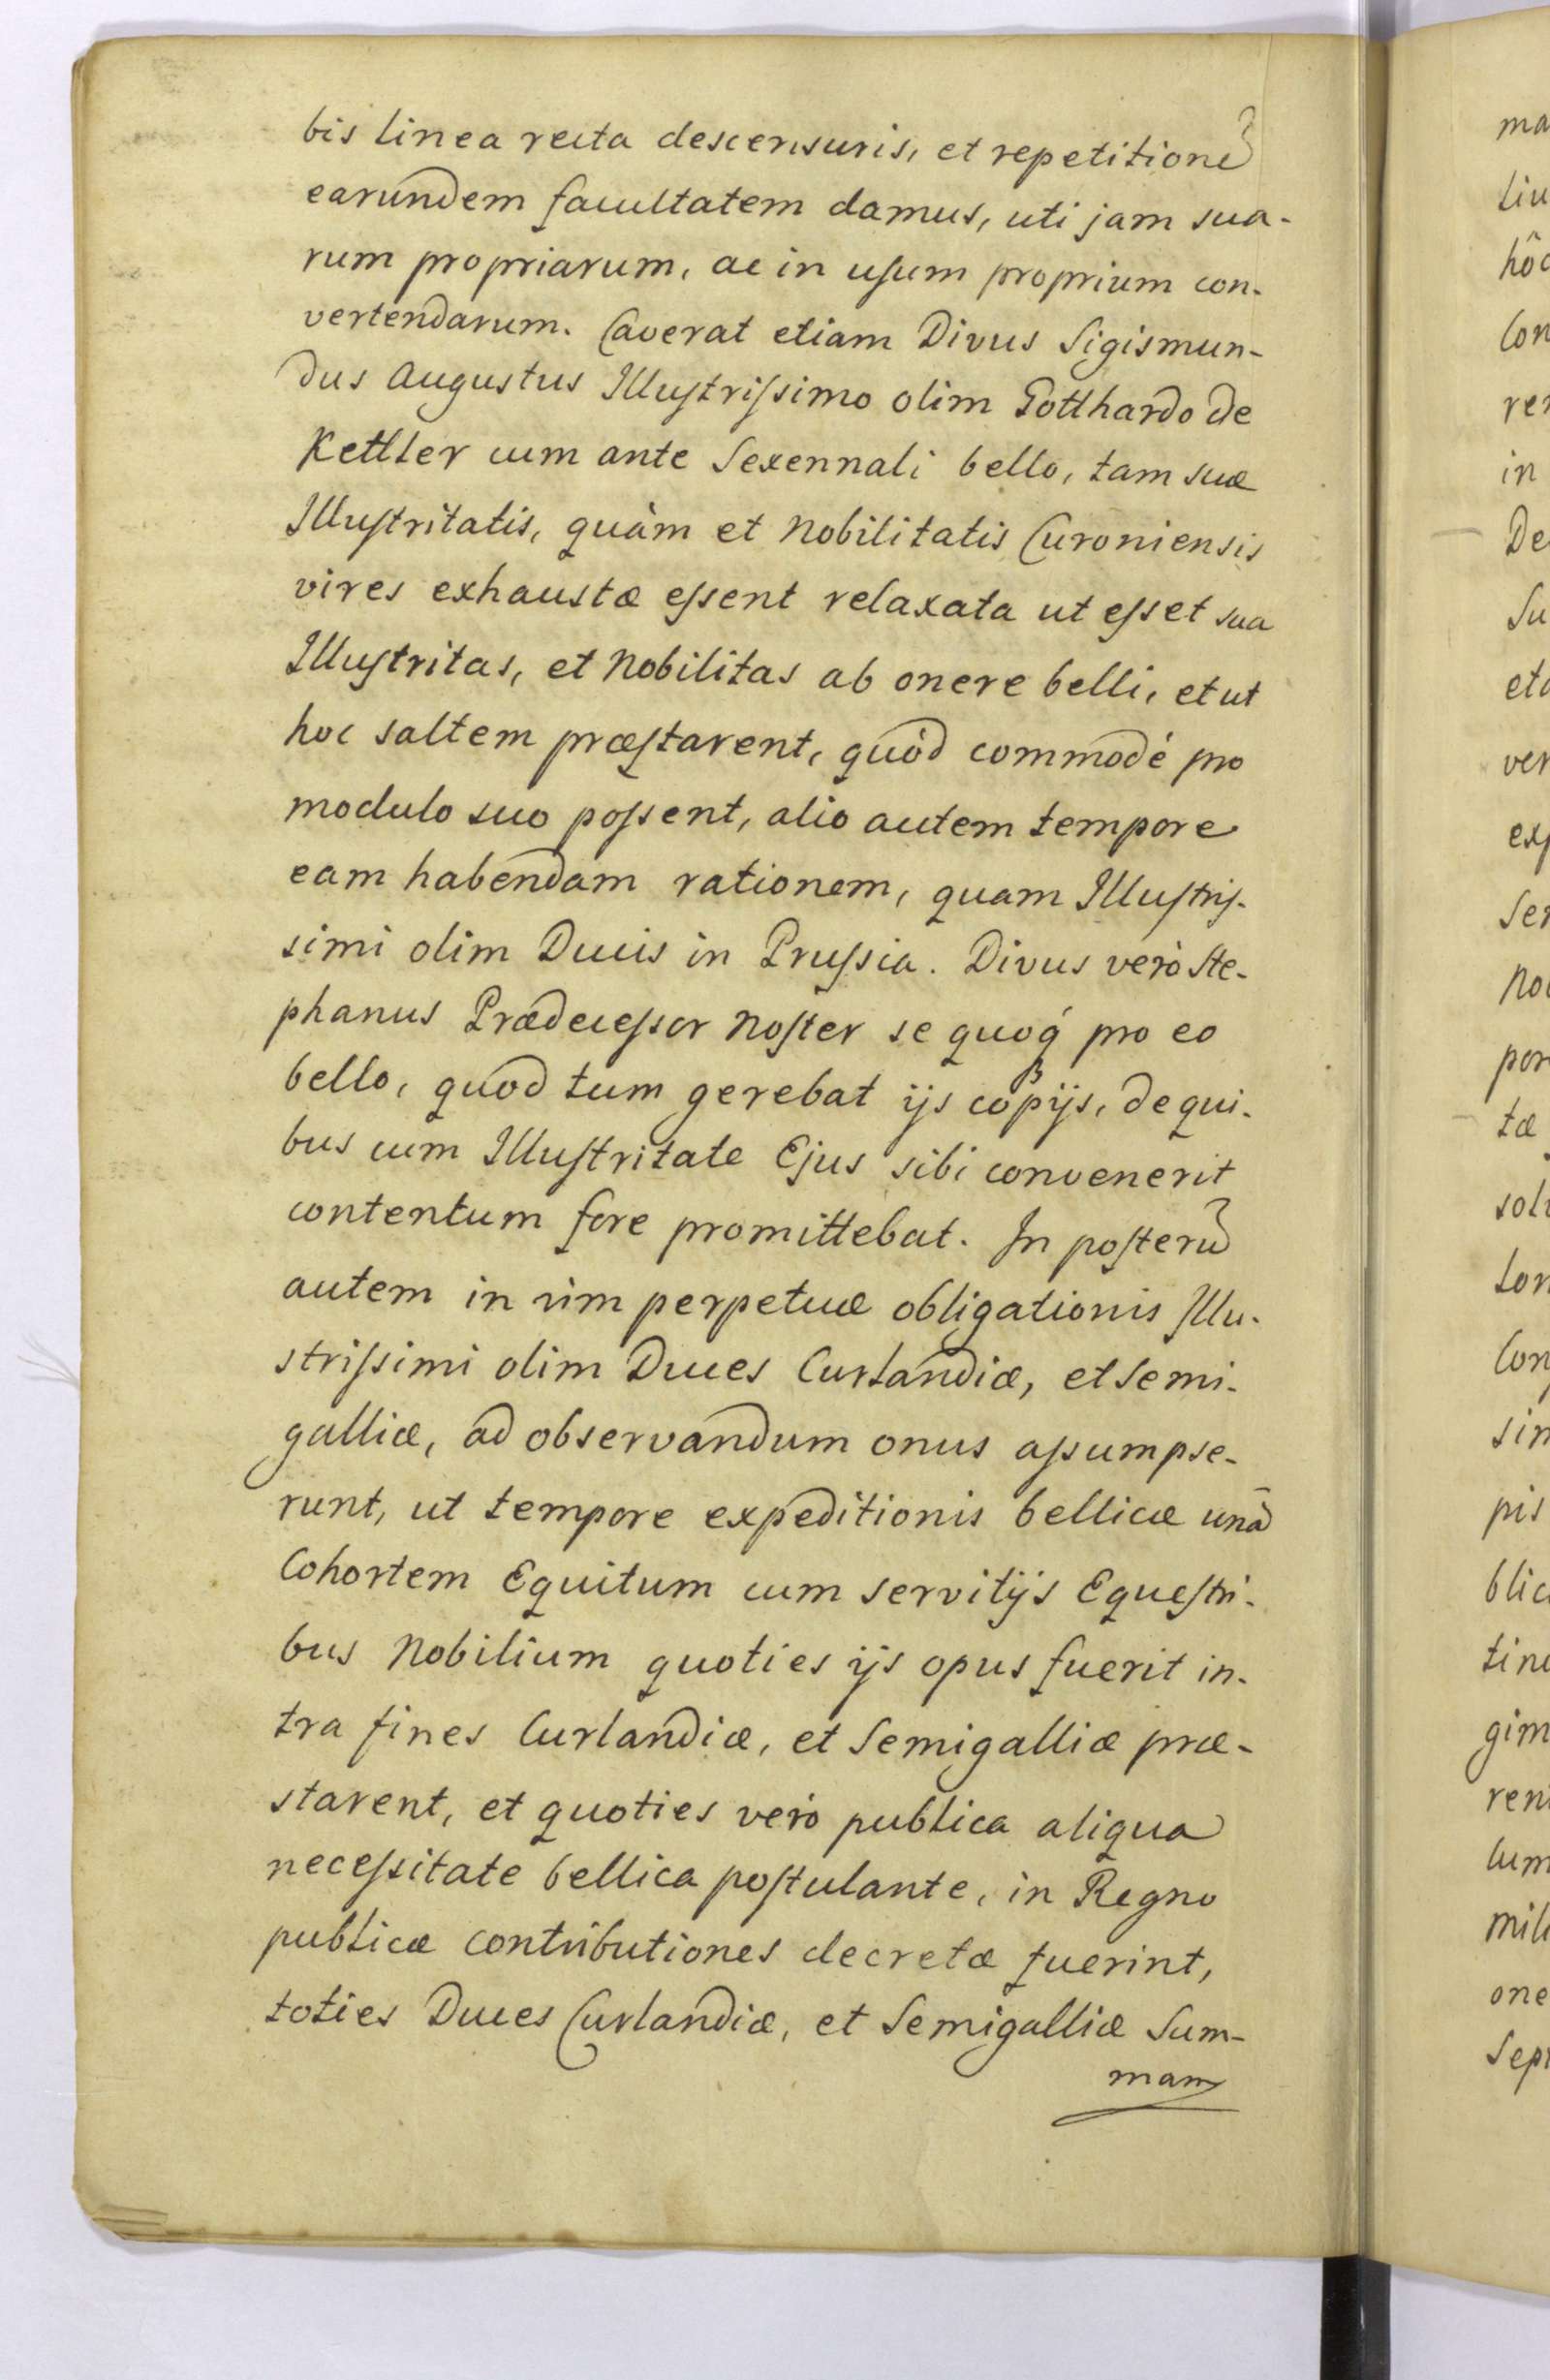 bis linea recta descensuris, et repetitionē
earundem facultatem damus, uti jam sua-
rum propriarum, ac in usum proprium con-
vertendarum. Caverat etiam Divus Sigismun-
dus Augustus Illustrissimo olim Gotthardo de
Kettler cum ante Sexennali bello, tam suæ
Illustritatis, quàm et Nobilitatis Curoniensis
vires exhaustæ essent relaxata ut esset sua
Illustritas, et Nobilitas ab onere belli, et ut
hoc saltem præstarent, quòd commodè pro
modulo suo possent, alio autem tempore
eam habendam rationem, quam Illustris-
simi olim Ducis in Prussia. Divus verò Ste-
phanus Prædecessor Noster se quoq́ pro eo
bello, quod tum gerebat ijs copijs, de qui-
bus cum Illustritate Ejus sibi convenerit
contentum fore promittebat. In posterū
autem in vim perpetuæ obligationis Illu-
strissimi olim Duces Curlandiæ, et Semi-
galliæ, ad observandum onus assumpse-
runt, ut tempore expeditionis bellicæ unā
Cohortem Equitum cum servitijs Equestri-
bus Nobilium quoties ijs opus fuerit in-
tra fines Curlandiæ, et Semigalliæ præ-
starent, et quoties verò publica aliqua
necessitate bellica postulante, in Regno
publicæ contributiones decretæ fuerint,
toties Duces Curlandiæ, et Semigalliæ Sum-
mam
ma
liu
hôc
Con
rer
in
De
Su
eta
ver
exp
Ser
No
por
tæ
soli
ton
Con
sin
pis
blic
tin
gim
ren
lum
mili
one
Sep